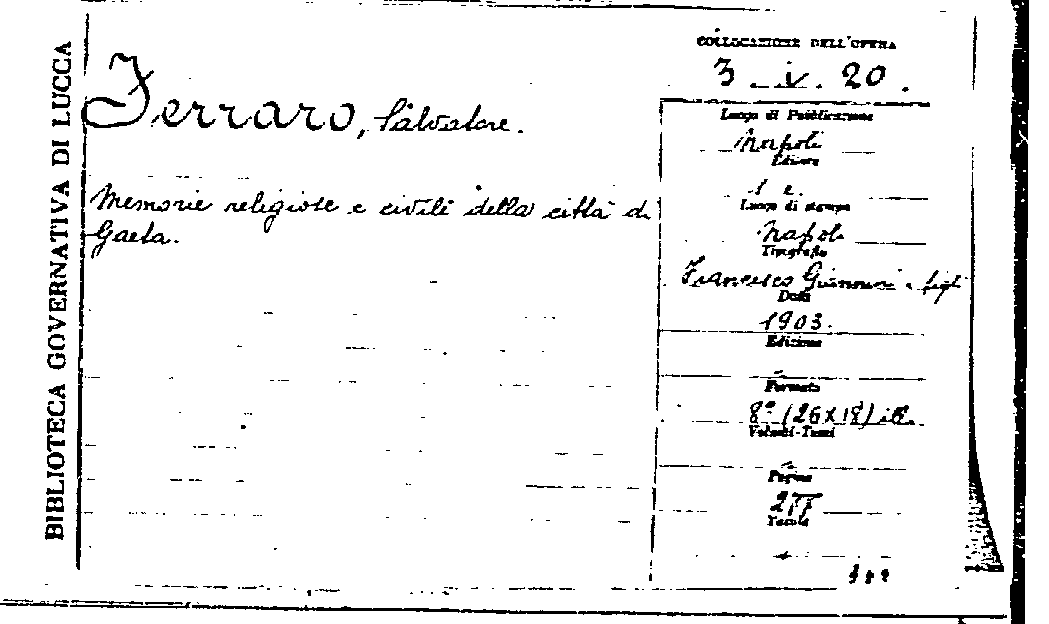 BIBLIOTECA GOVERNATIVA DI LUCCA
Ferraro, Salvatore.
Memorie religiose e civili della città di
Gaeta.
COLLOCAZIONE DELL'OPERA
3. iv. 20.
Luogo di Pubblicazione
Napoli
Editore
s. e.
Luogo di stampa
Napoli
Tipografia
Francesco Giannini e figli
Data
1903.
Edizione
Formato
8° (26x18) ill.
Volumi-Tomi
Pagine
Tavole